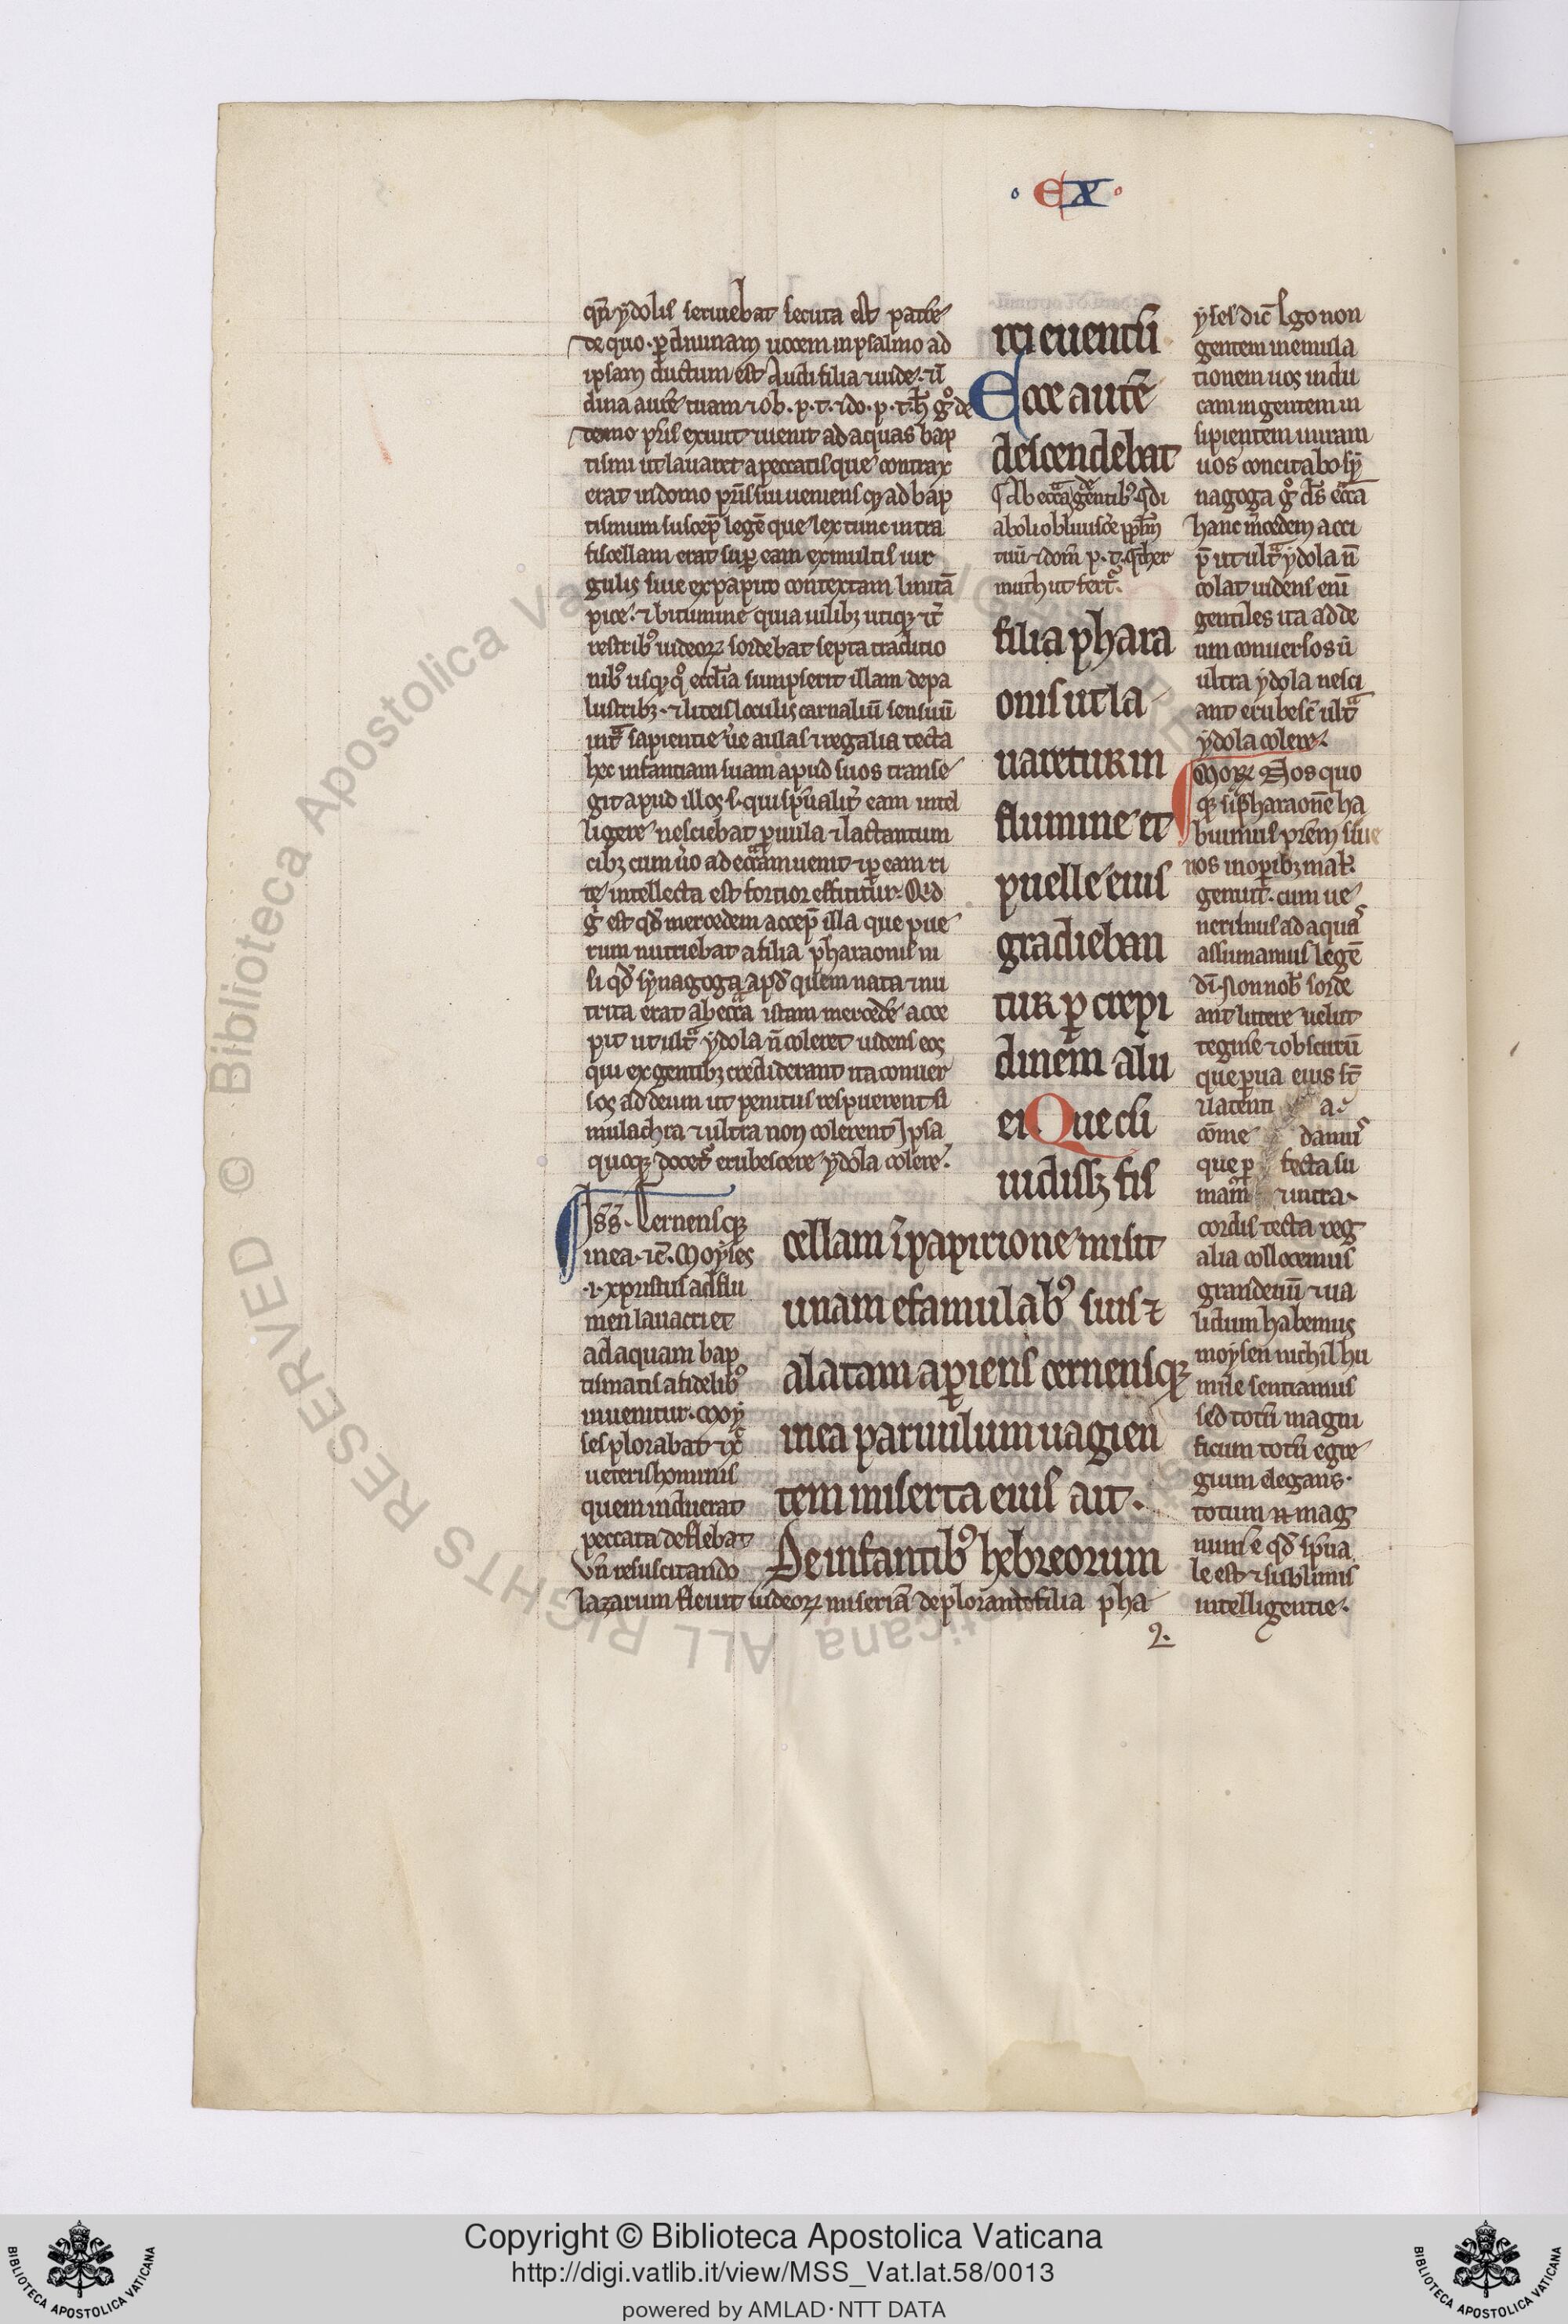 · EX ·
qn̄ ydolis seruiebat secuta est patrē
de quo · ꝑ diuinam uocem in psalmo ad
ipsam dictum est Audi filia ⁊ uide · ⁊ ī
clina aurē tuam ⁊ ob · p · t · ⁊ do · p · t · h̄ gͦ de
domo pr̄is exiuit ⁊ uenit ad aquas bap
tismi ut lauaret a peccatis que contrax
erat in domo pr̄is sui ueniensqꝫ ad bap
tismum suscep̄ legē que lex tunc intra
fiscellam erat suꝑ eam ex multis uir
gulis siue ex papiro contextam linitā
pice · ⁊ bitumine quia uilibꝫ utiqꝫ ⁊ t̄
restribꝰ iudeoꝝ sordebat septa traditio
nibꝰ usqꝫ qͦ eccl̄ia sumpserit illam de pa
lustribꝫ · ⁊ luteis loculis carnaliū sensuū
intᵃ sapientie ūe aulas ⁊ regalia tecta
hec infantiam suam apud suos transe
git apud illos .s. qui sp̄ualit̄ eam intel
ligere nesciebat ꝑuula ⁊ lactantium
cibꝫ cum ūo ad ecc̄am uenit ⁊ ꝑ eam ri
te intellecta est fortior efficitur · Qid
gͦ est qd̄ mercedem accep̄ illa que pue
rum nutriebat a filia pharaonis ni
si qd̄ synagoga apd̄ quem nata ⁊ nu
trita erat ab ecc̄a istam mercedē acce
pit ut ultᵃ ydola n̄ coleret uidens eos
qui ex gentibꝫ crediderant ita conuer
sos ad deum ut penitus respuerent si
mulachra ⁊ ultra non colerent Ipsa
quoqꝫ docetᷣ erubescere ydola colere ·
Iss̄ · Cernensqꝫ
in ea · ⁊c̄ · Moyses
· i · xpristus ad flu
men lauacri et
ad aquam bap
tismatis a fidelibꝰ
inuenitur · Moy
ses plorabat ⁊ xᷓ
ueteris hominis
quem induerat
peccata deflebat
Vn̄ resuscitando
lazarum fleuit iudeoꝝ miseriā deplorando filia pha
rei euentū
Ecce autē
descendebat
¶ Ab ecc̄a de gentibꝰ qᷣ di
aboli obliuisce ppl̄m
tuū ⁊ dom̄ p · t · qᷣ ther
muth ut fertᷣ ·
filia phara
onis ut la
uaretur in
flumine et
puelle eius
gradieban
tur ꝑ crepi
dinem alu
ei Que cū
uidissꝫ fis
cellam ī papirione misit
unam e famulabꝰ suis ⁊
alatam aꝑiens cernensqꝫ
in ea paruulum uagien
tem miserta eius ait ·
De infantibꝰ hebreorum
yses dic̄ Ego non
gentem in emula
tionem uos indu
cam in gentem in
sipientem in iram
uos concitabo sy
nagoga gͦ ds̄ ecc̄a
hanc m̄cedem acci
p̄ ut ultᵃ ydola n̄
colat uidens enī
gentiles ita ad de
um conuersos ū
ultra ydola nesci
ant erubesc̄ ultᵃ
ydola colere ·
Moꝝ Nos quo
qꝫ si pharaonē ha
buimus pr̄em siue
nos in oꝑibꝫ mał ·
genuit · cum ue
nerimus ad aquas
assumamus legē
dī · Non nob̄ sorde
ant littere uelut
tegmē ⁊ obscurū
que ꝑua eius st̄
come damus
que ꝑfecta su
mam̄ ⁊ intra ·
cordis tecta reg
alia collocemus
grandeuū ⁊ ua
lidum habemus
moysen nichil hu
mile sentiamus
sed totū magni
ficum totū egre
gium elegans ·
totum n̄ mag
num ē qd̄ sp̄ua
le est ⁊ sublimis
intelligentie ·
2.
© Biblioteca Apostolica Vaticana ALL RIGHTS RESERVED
Copyright © Biblioteca Apostolica Vaticana
http://digi.vatlib.it/view/MSS_Vat.lat.58/0013
powered by AMLAD·NTT DATA
BIBLIOTECA APOSTOLICA VATICANA
BIBLIOTECA APOSTOLICA VATICANA